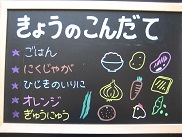 きょうのこんだて
★ ごはん
★ にくじゃが
★ ひじきのいりに
★ オレンジ
★ ぎゅうにゅう